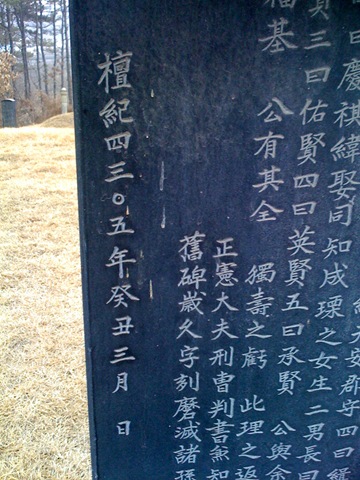 郡守四曰緯
曰慶祺緯娶同知成瑮之女生二男長曰
三曰佑賢四曰英賢五曰承賢 公與余
福基 公有其全 獨壽之虧 此理之返
正憲大夫刑曹判書兼知
舊碑歲久字刻磨滅諸孫
檀紀四三〇五年癸丑三月 日